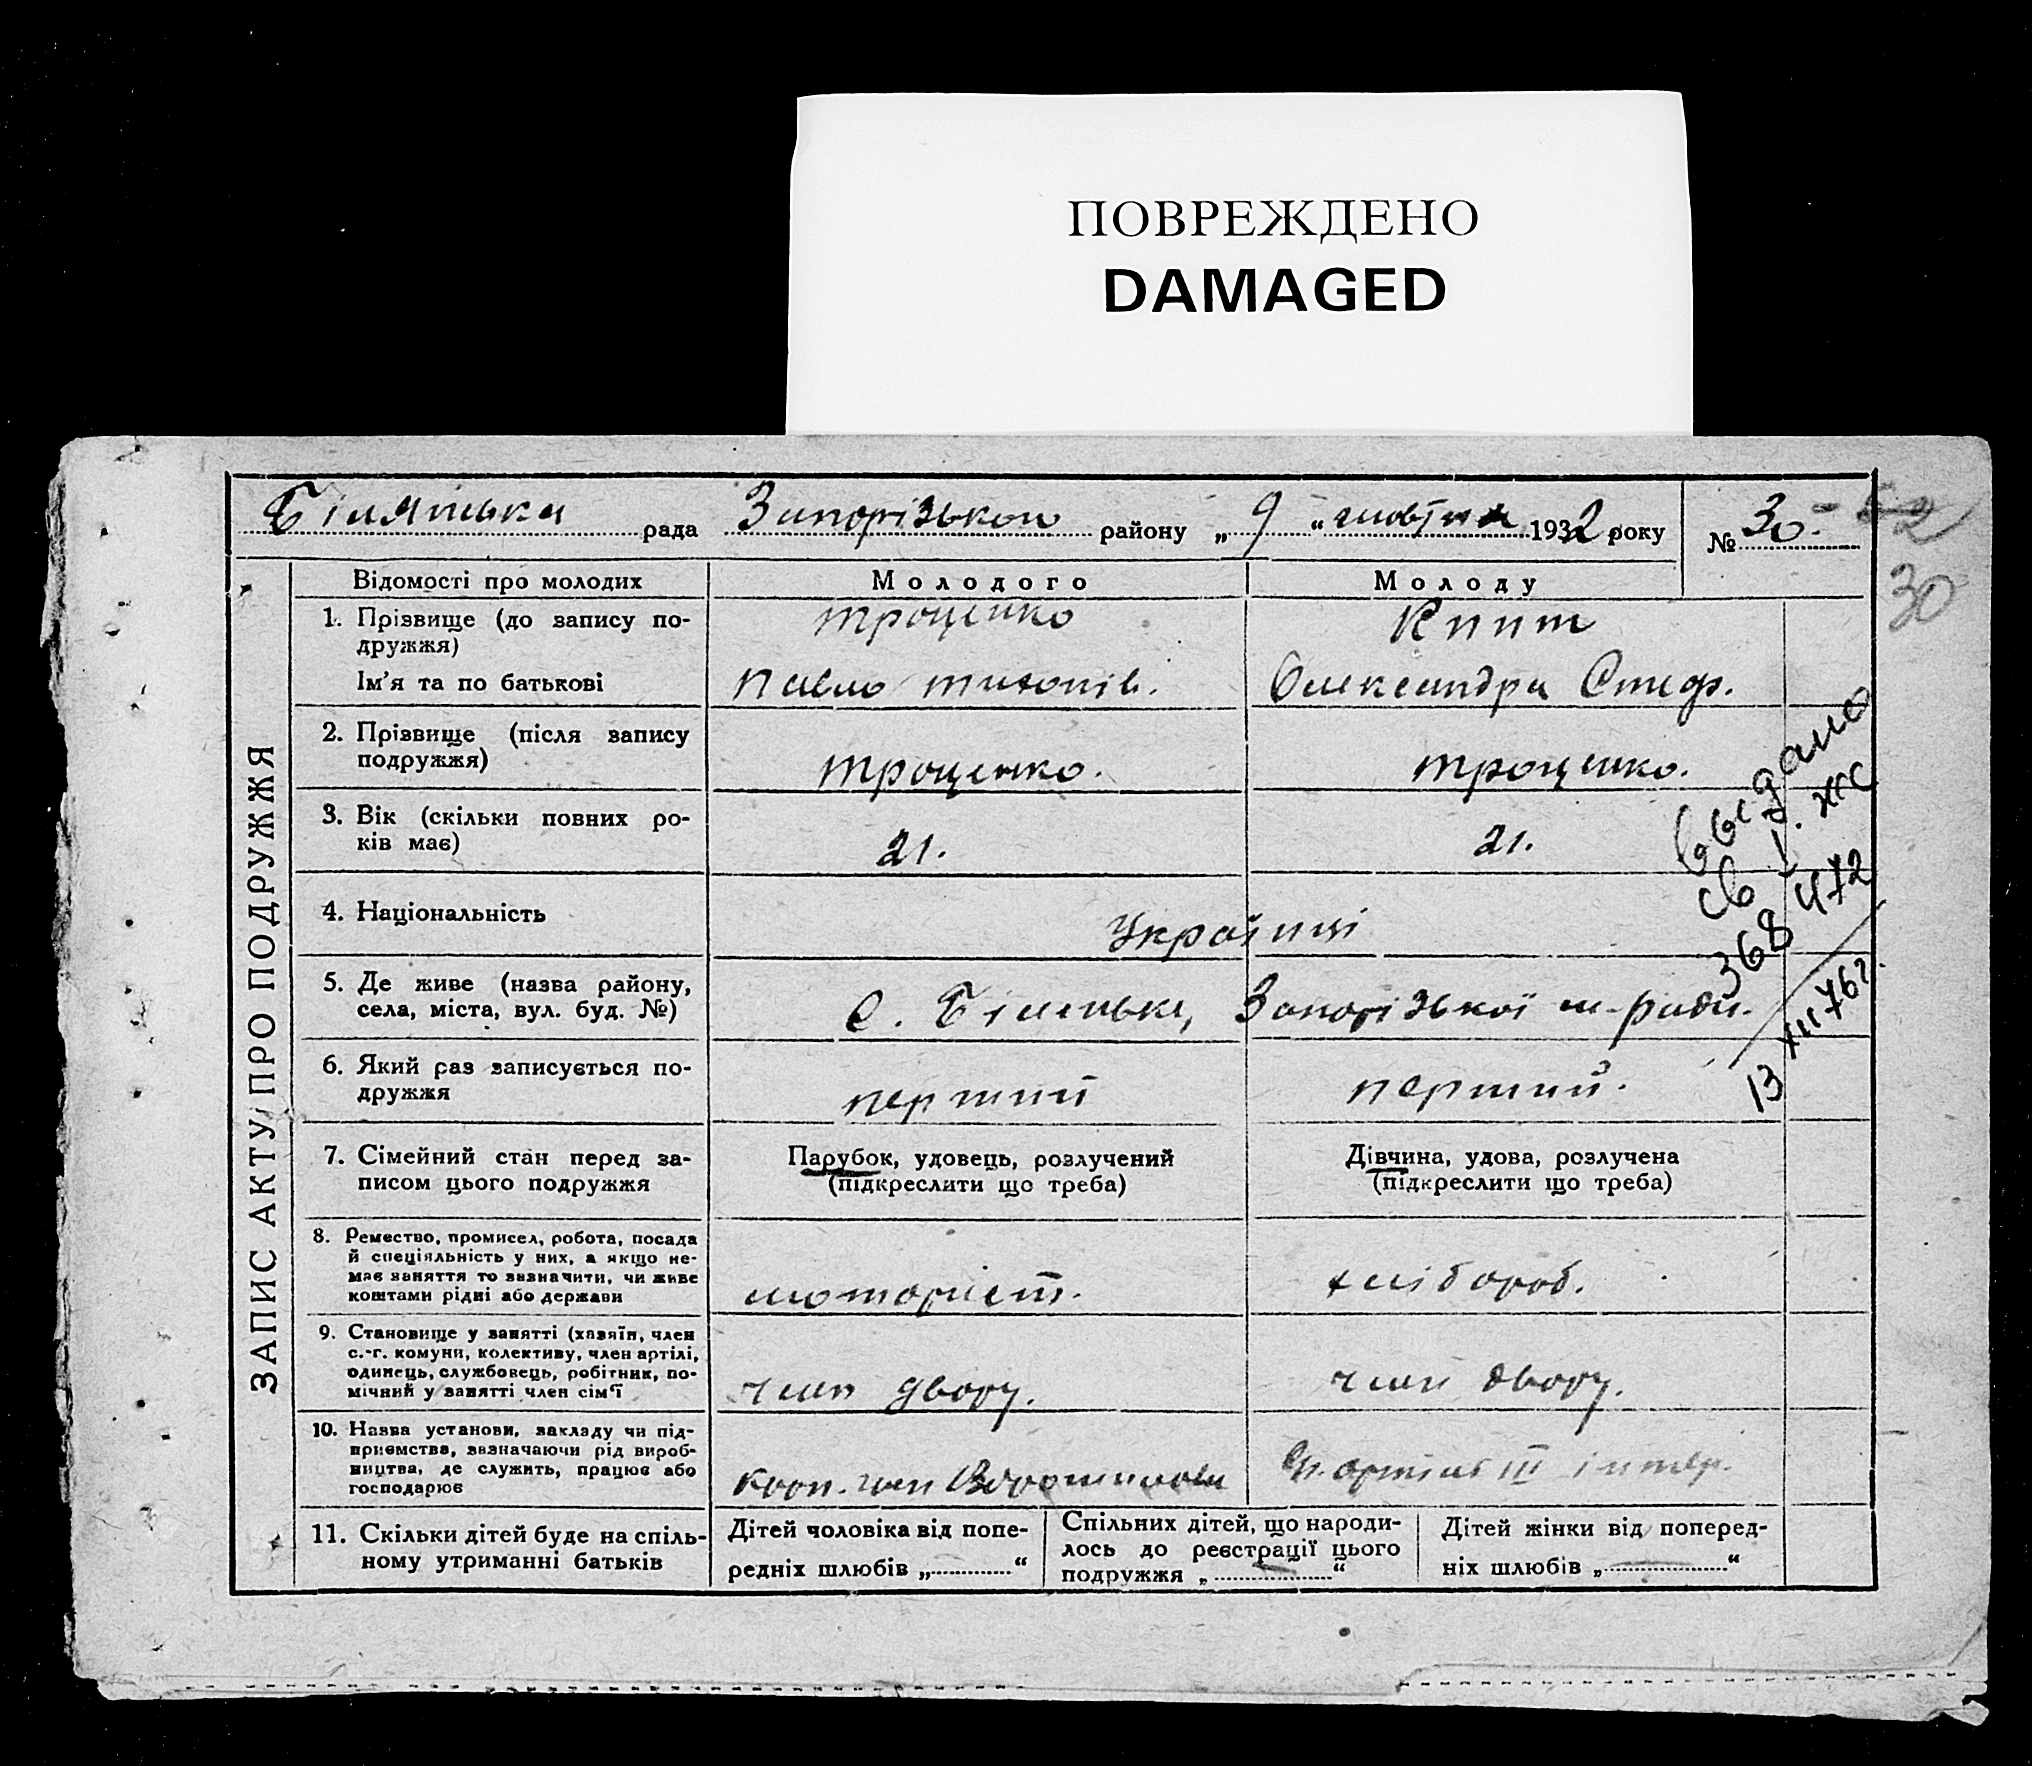 ПОВРЕЖДЕНО
DAMAGED
рада Запорізького району „ 9 “ жовтня 1932 року № 30.
30
ЗАПИС АКТУ ПРО ПОДРУЖЖЯ
Відомості про молодих Молодого Молоду
1. Прізвище (до запису по-
дружжя) Троценко
Ім'я та по батькові Павло Тихонів. Олександра Стеф.
2. Прізвище (після запису
подружжя) Троценко. Троценко.
3. Вік (скільки повних ро-
ків має) 21. 21.
4. Національність Українці
5. Де живе (назва району,
села, міста, вул. буд. №) с. Біленьке, Запорізької м-ради.
6. Який раз записується по-
дружжя перший перший.
7. Сімейний стан перед за-
писом цього подружжя
Парубок, удовець, розлучений
(підкреслити що треба)
Дівчина, удова, розлучена
(підкреслити що треба)
8. Ремество, промисел, робота, посада
й спеціяльність у них, а якщо не-
має заняття то зазначити, чи живе
коштами рідні або держави
моторіст. хлібороб.
9. Становище у занятті (хазяїн, член
с.-г. комуни, колективу, член артілі,
одинець, службовець, робітник, по-
мічний у занятті член сім'ї
член двору. член двору.
10. Назва установи, закладу чи під-
приємства, зазначаючи рід вироб-
ництва, де служить, працює або
господарює
Ворошилова артіль III інтер.
11. Скільки дітей буде на спіль-
ному утриманні батьків
Дітей чоловіка від попе-
редніх шлюбів „ “
Спільних дітей, що народи-
лось до реєстрації цього
подружжя „ “
Дітей жінки від поперед-
ніх шлюбів „ “
Выдано
св I. ЖС
368 472
13 XII 76г.